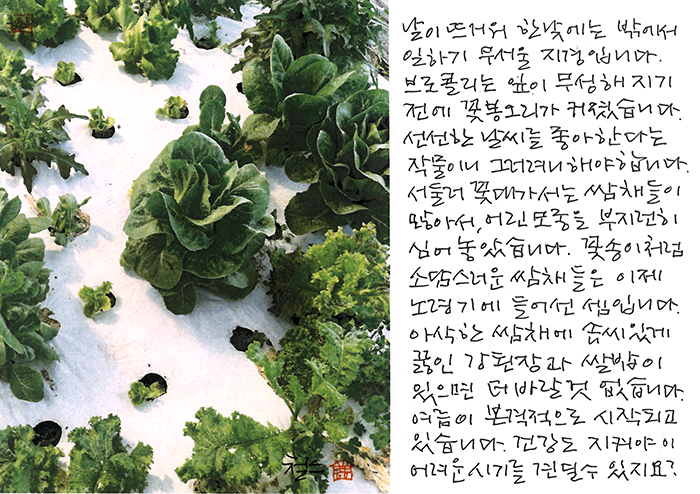 날이 뜨거워 한낮에는 밖에서
일하기 무서울 지경입니다.
브로콜리는 잎이 무성해 지기
전에 꽃봉오리가 커졌습니다.
선선한 날씨를 좋아한다는
작물이니 그러려니해야합니다.
서둘러 꽃대가서는 쌈채들이
많아서, 어린모종을 부지런히
심어 놓았습니다. 꽃송이처럼
소담스러운 쌈채들은 이제
노령기에 들어선 셈입니다.
아삭한 쌈채에 솜씨있게
끓인 강된장과 쌀밥이
있으면 더 바랄것 없습니다.
여름이 본격적으로 시작되고
있습니다. 건강도 지켜야 이
어려운시기를 견딜수 있지요?